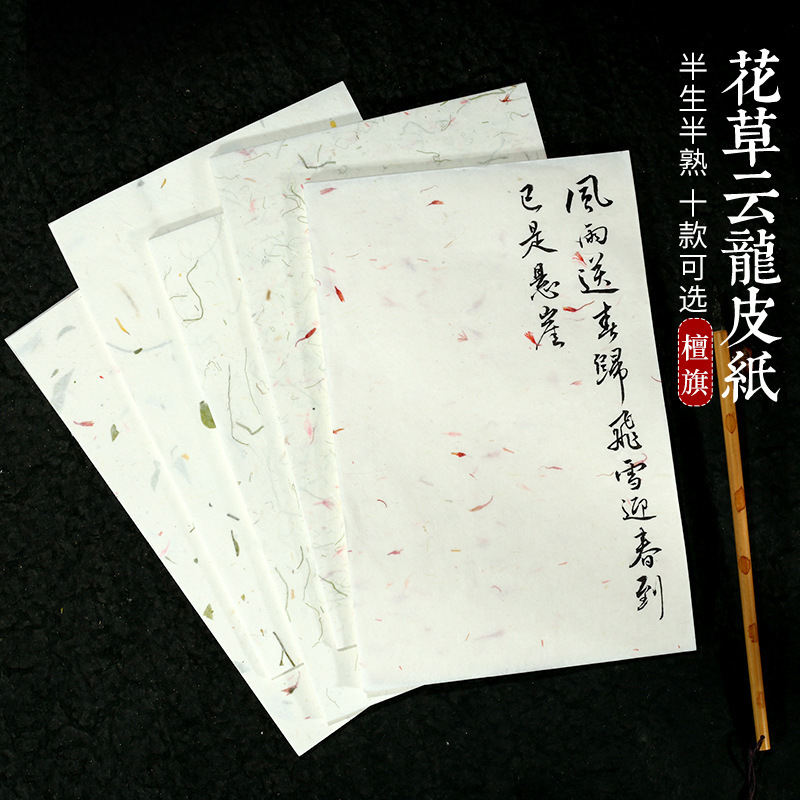 花草云龍皮紙
半生半熟 十款可选
檀旗
風雨送春歸飛雪迎春到
已是懸崖